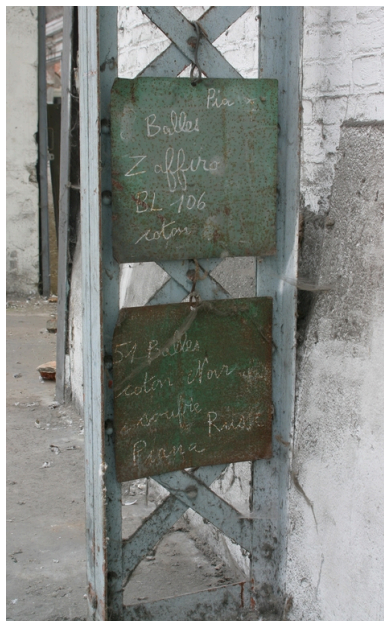 Pia
8 Balles
Zaffiro
BL 106
coton
51 Balles
coton Noir
soufre
Russe
Piana